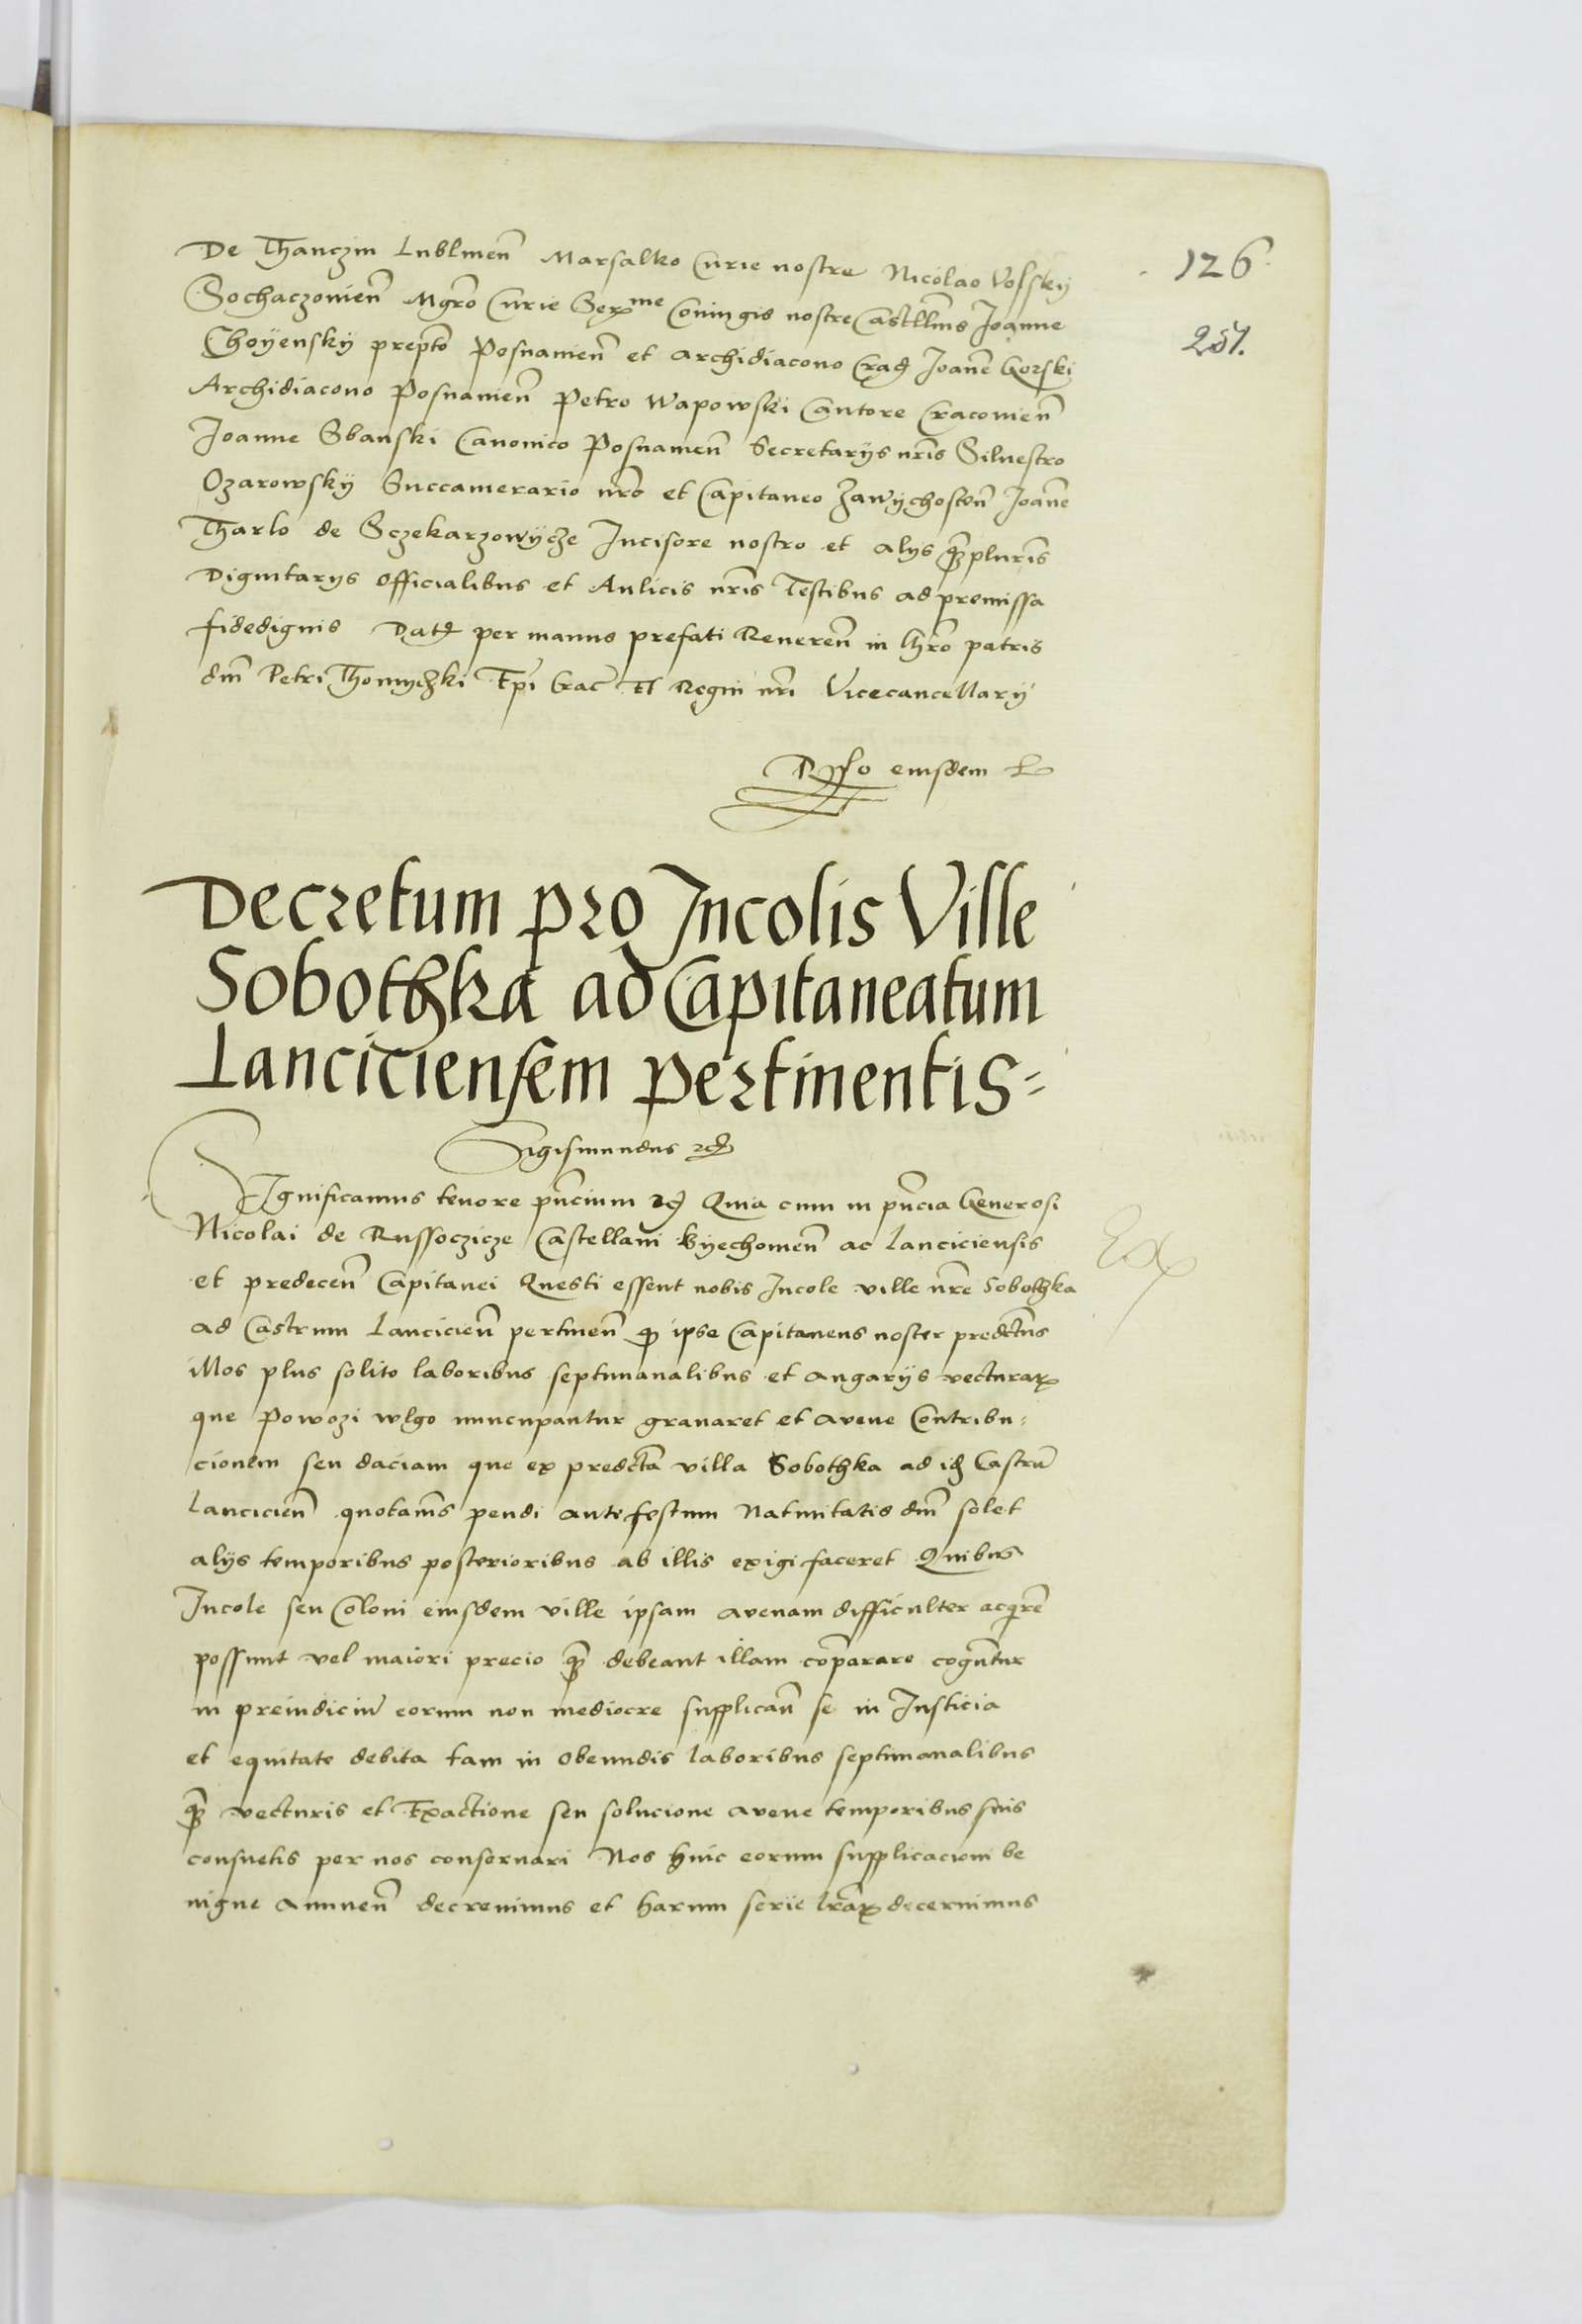 De Thanczin Lublinen̄ Marsalko Curie nostre Nicolao Volsky
126
Sochaczouien̄ Mgr̄o Curie Serme Coniugis nostre Castellm̄s Joanne
251.
Choyensky prepto Posnanien̄ et archidiacono Crac Joan̄e Gorski
Archidiacono Posnanien̄ Petro Wapowski Cantore Cracouien̄
Joanne Sbanski Canonico Posnanien̄ Secretarijs nr̄is Siluestro
Ozarowsky Succamerario nr̄o et Capitaneo Zawychosten̄ Joan̄e
Tharlo de Sczekarzowycze Incisore nostro et alys q̄pluris
Dignitarys officialibus et Aulicis nr̄is Testibus ad premissa
fidedignis Dat per manus prefati Reueren̄ in chr̄o patris
dn̄i Petri Thomyczki Ep̄i Crac Et Regni nr̄i Vicecancellarij
Rsso eiusdem
Decretum pro Incolis Ville
Sobothka ad Capitaneatum
Lanciciensem pertinentis=
Sigismundus
Significamus tenore pn̄cium Quia cum in pn̄cia Generosi
Nicolai de Russoczicze Castellani Byechouien̄ ac Lanciciensis
Ex
et predecen̄ Capitanei Questi essent nobis Incole ville nr̄e Sobothka
ad Castrum Lancicien̄ pertinen̄ ipse Capitaneus noster predctus
illos plus solito laboribus septimanalibus et angarijs vecturarꝝ
que Powozi wlgo nuncupantur grauaret et auene Contribu=
cionem seu daciam que ex predcta villa Sobothka ad id Castrū
Lancicien̄ quotan̄is pendi ante festum Natiuitatis dn̄i solet
alijs temporibus posterioribus ab illis exigi faceret Quibus
Incole seu Coloni eiusdem ville ipsam auenam difficulter acqrē
possunt vel maiori precio q̄ debeant illam cōparare cogūtur
in preiudiciū eorum non mediocre supplican̄ se in Iusticia
et equitate debita tam in obeundis laboribus septimanalibus
q̄ vecturis et Exactione seu solucione auene temporibus suis
consuetis per nos conseruari Nos huic eorum supplicacioni be
nigne annuen̄ decreuimus et harum serie lr̄arꝝ decernimus